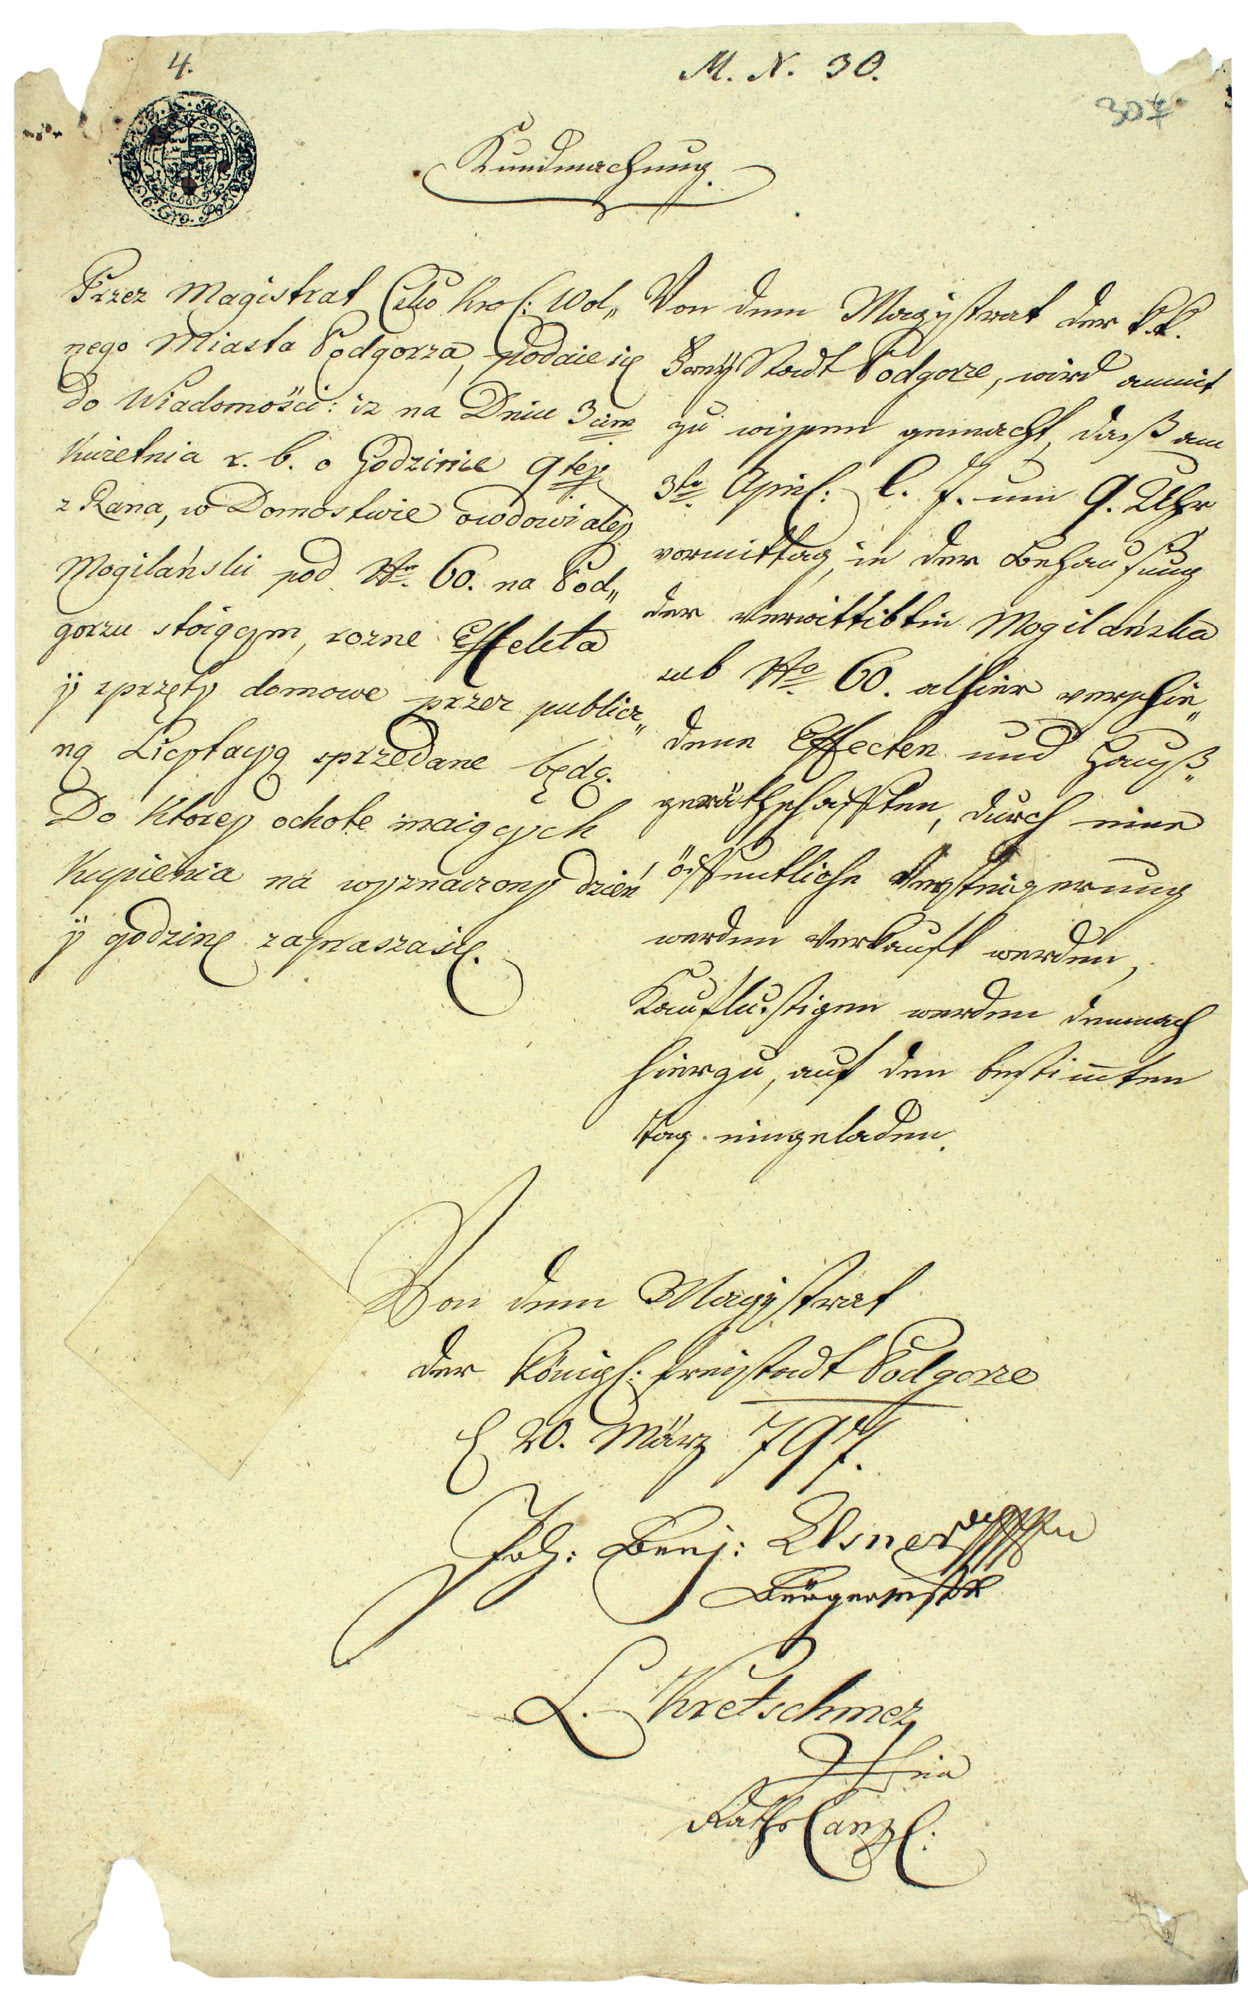 4.
M. N. 30.
307
Kundmachung.
Przez Magistrat Cesko Kro l: Wol„
nego Miasta Podgorza, podaie się
do Wiadomości: iz na Dniu 3cim
Kwietnia r. b. o Godzinie 9tey
z Rana, w Domostwie owdowiałey
Mogilański pod Nro 60. na Pod„
gorzu stoiącym, rozne Effekta
ÿ sprzęty domowe przez publicz„
ną Licytacyą sprzedane będą.
Do Ktorey ochote maiących
Kupienia na wyznaczony dzień
ÿ godzinę zaprasza się.
Von dem Magÿstrat der k.k.
Freÿ Stadt Podgorze, wird anmit
zu wissen gemacht, daß am
3tn April: l. J. um 9. Uhr
vormittag, in der Behausung
der verwittibtin Mogilańska
sub Nro 60. alhier verschie„
dene Effecten und Hauß„
geräthschafften, durch eine
öffentliche Versteigerung
werden Verkauft werden,
Kauflustigen werden demnach
hierzu, auf den bestimten
Tag eingeladen.
Von dem Magÿstrat
der Königl: freÿstadt Podgorze
20. März 797.
Joh: Benj: Elsner
Bürgermstr
L. Kretschmer
Raths Canzl: